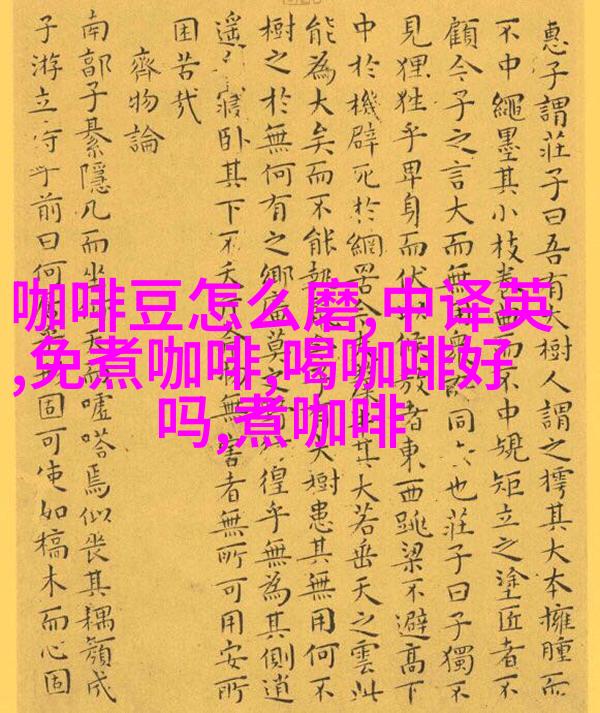 咖啡豆怎么磨,中译英
,免煮咖啡,喝咖啡好
吗,煮咖啡
惠子謂莊子曰吾有大樹人謂之樗其大本擁腫而
不中繩墨其小枝曲而不中規矩立之塗匠者不
顧今子之言大而無用衆同也莊子曰子獨不
見狸狌乎卑身而伏候敖者東西跳梁不避髙下
中於機辟死於網罟今其大若垂天之雲此
能為大矣而不能執大樹患其無用何不
樹之於無何有之鄉廣莫之徨乎無為其側逍
遙寢卧其下不夭物無害者無所可用安所
困苦哉
齊物論
南郭子綦隱几而坐天而嘘嗒焉似喪其耦顏成
子游立侍乎前曰何固可使如槁木而心固